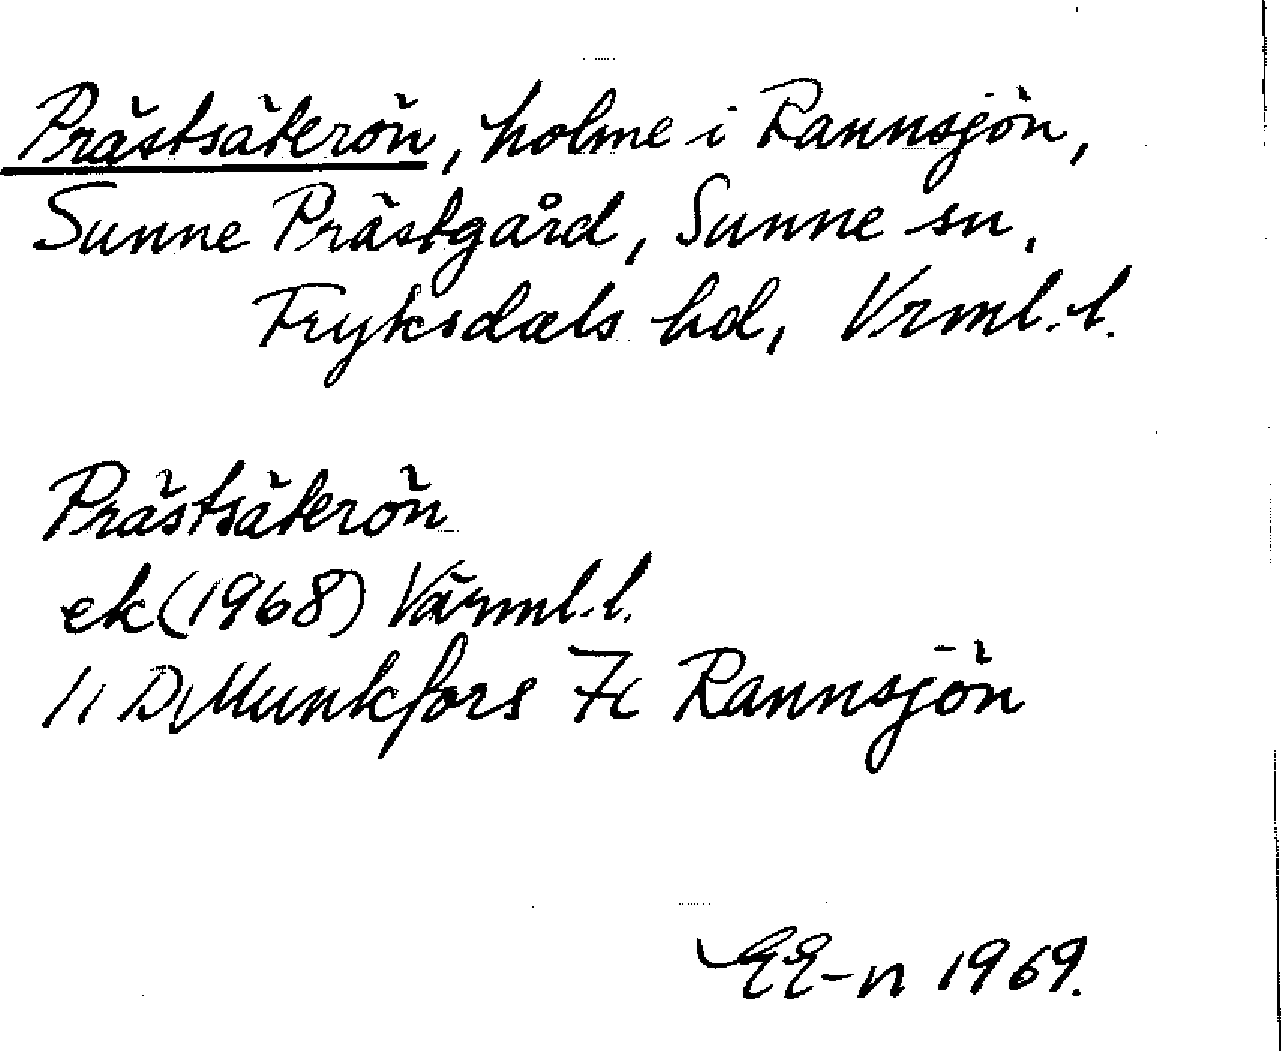 Prästsäterön, holme i Rannsjön,
Sunne Prästgård, Sunne sn,
Fryksdals hd, Vrml. l.
Prästsäterön
ek (1968) Värml. l.
11 D Munkfors 7c Rannsjön
EE-n 1969.